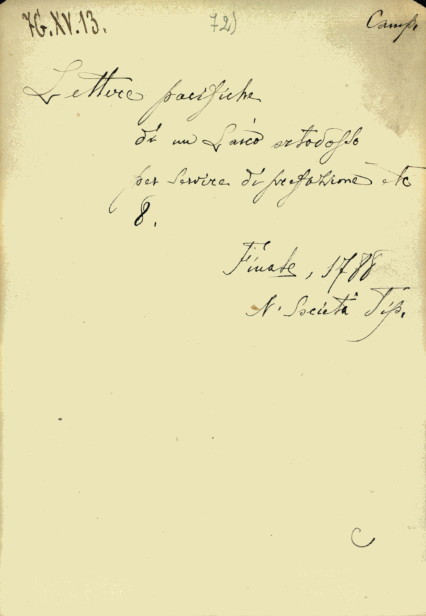 7G.XV.13.
72)
Camp.
Lettere pacifiche
di un Laico ortodosso
per servire di prefazione etc
8.
Finale, 1788
N. Società Tip.
C